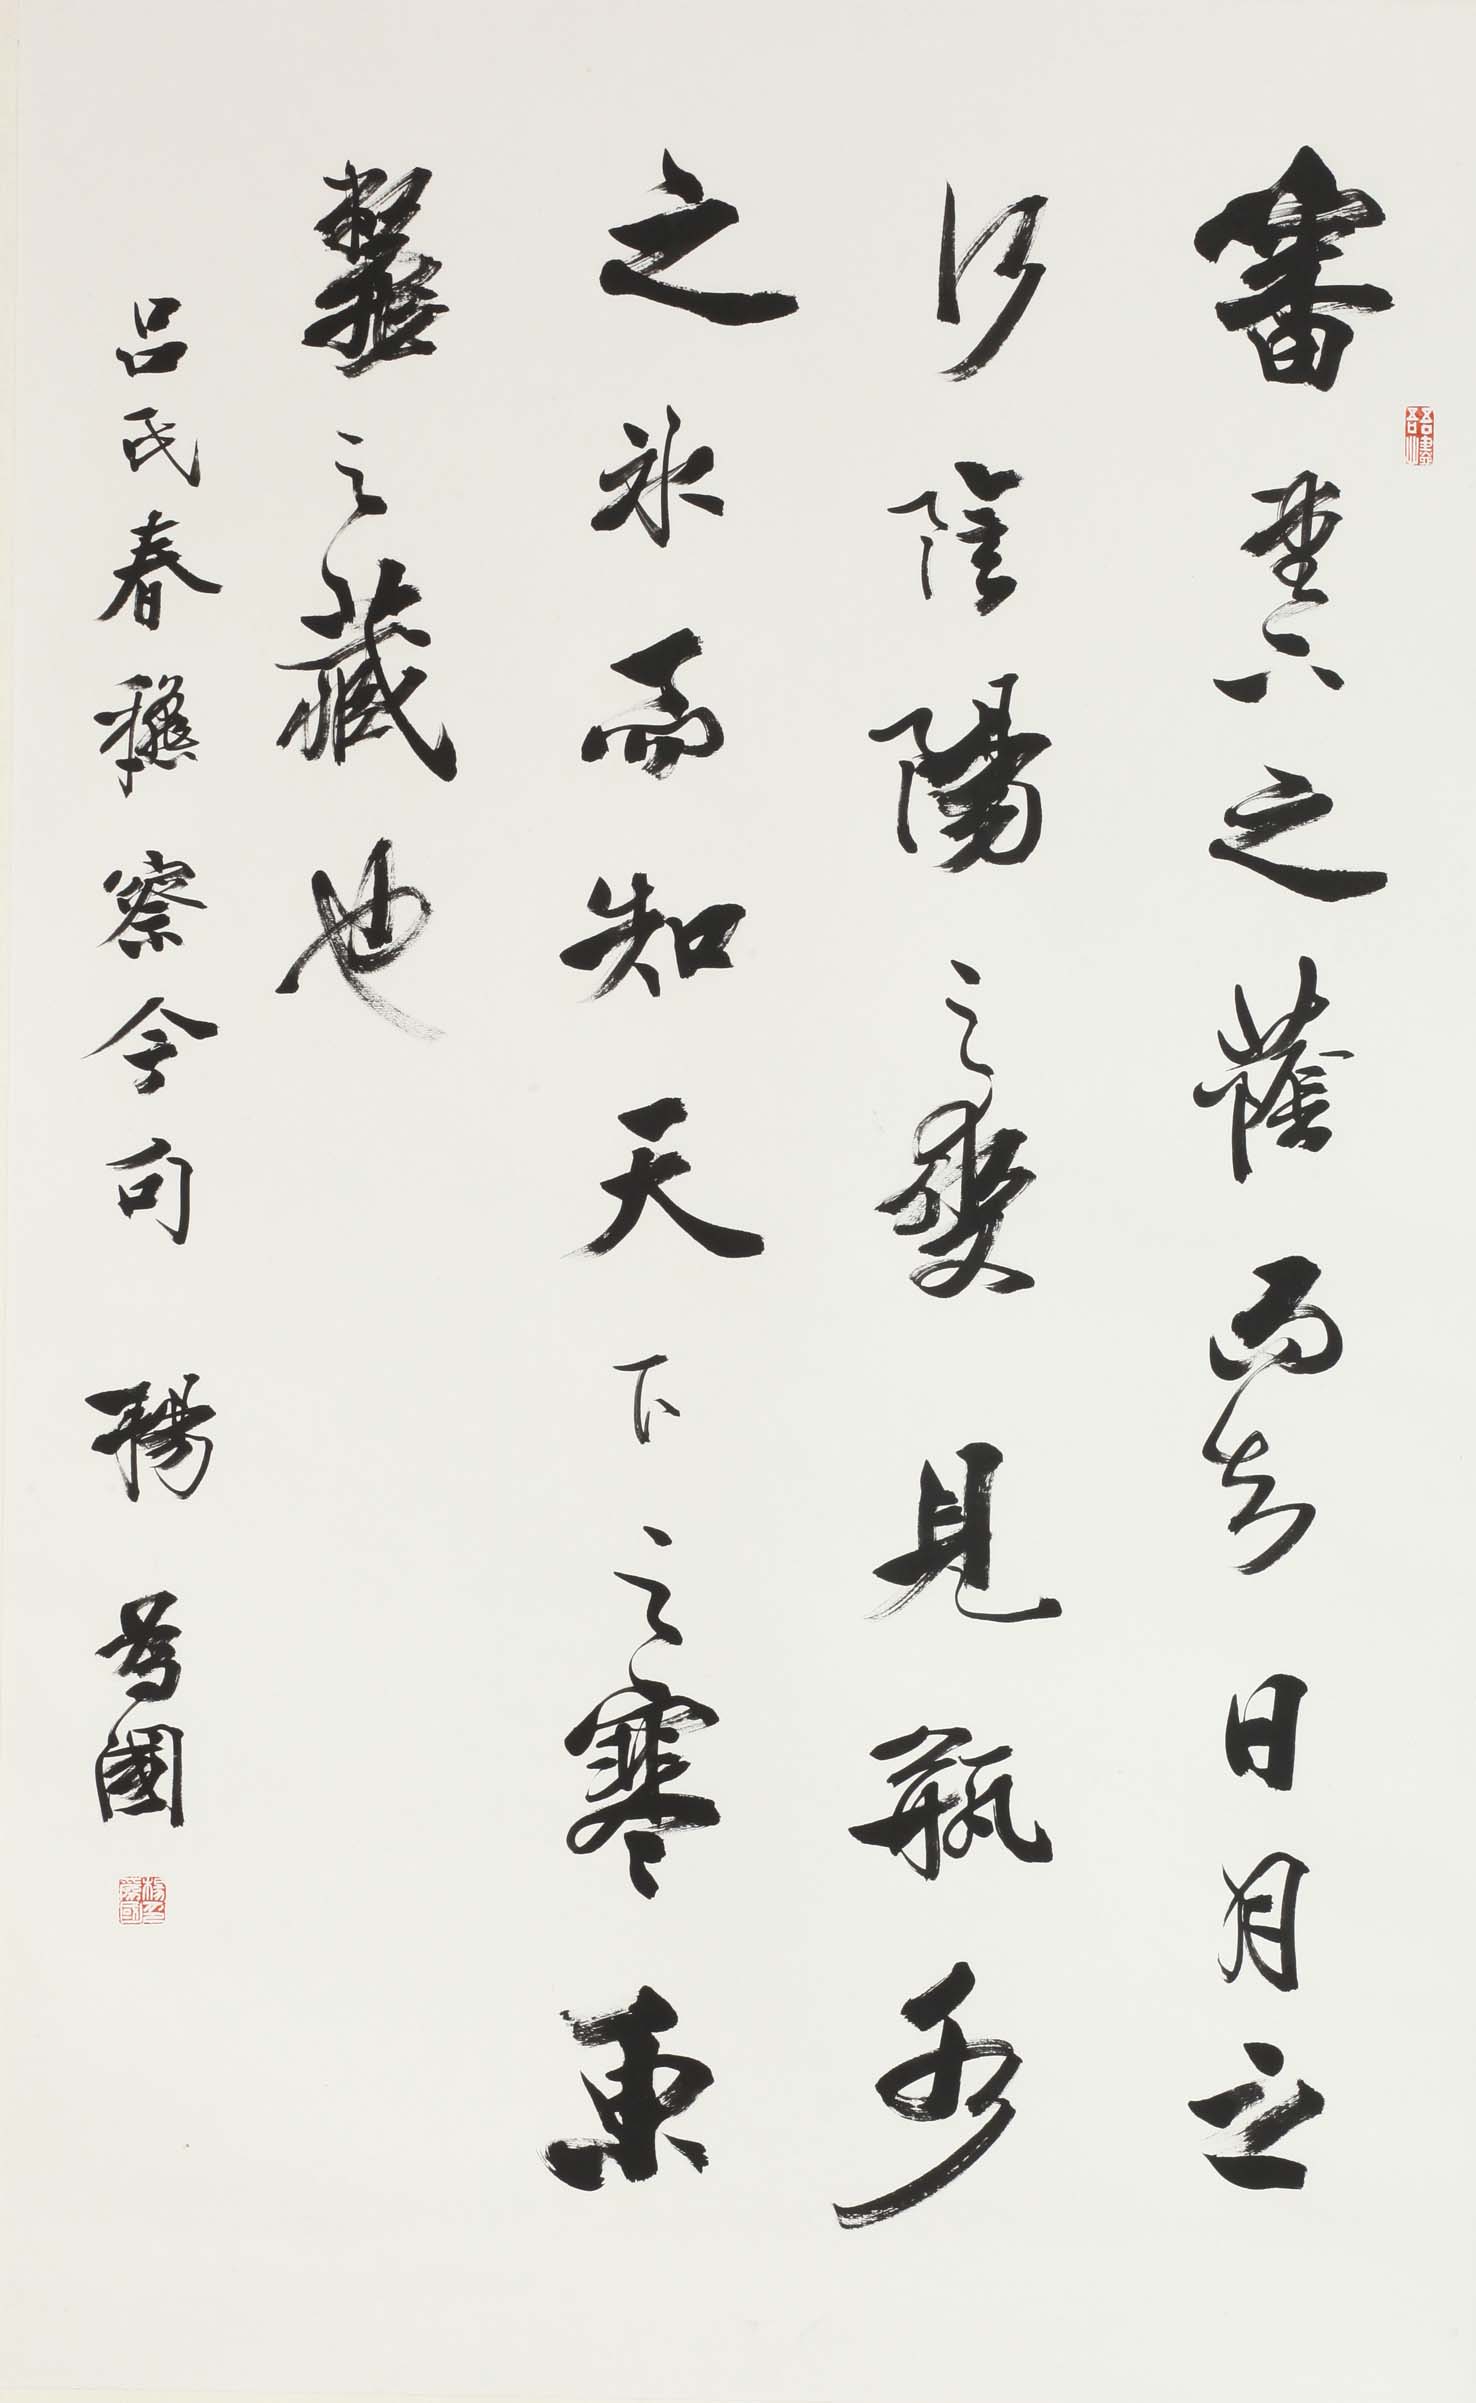 審堂下之蔭而知日月之
行陰陽之變見瓶水
之冰而知天下之寒魚
鼈之藏也
呂氏春龝察今句 楊為國